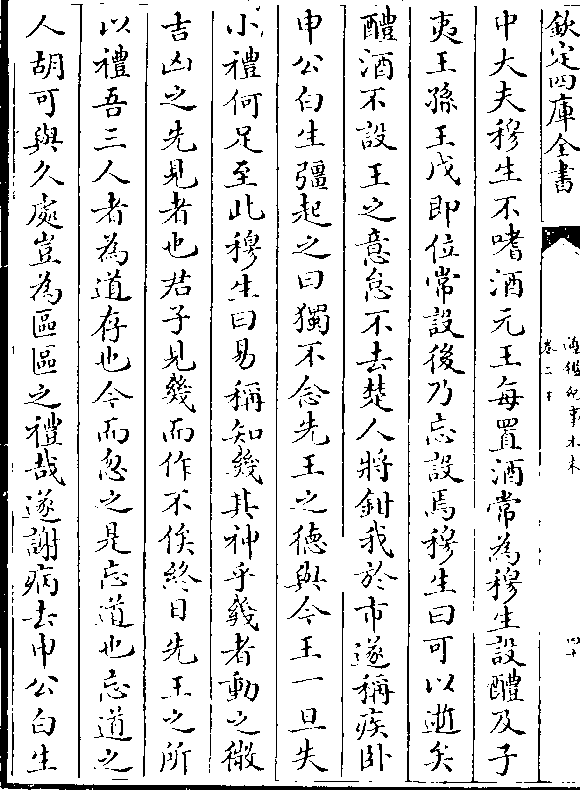 欽定四庫全書
通鑑紀事本末
卷二下
四十
中大夫穆生不嗜酒元王每置酒常為穆生設醴及子
夷王孫王戊即位常設後乃忘設焉穆生曰可以逝矣
醴酒不設王之意怠不去楚人將鉗我於市遂稱疾卧
申公白生彊起之曰獨不念先王之徳與今王一旦失
小禮何足至此穆生曰易稱知幾其神乎幾者動之微
吉凶之先見者也君子見幾而作不俟終日先王之所
以禮吾三人者為道存也今而忽之是忘道也忘道之
人胡可與久處豈為區區之禮哉遂謝病去申公白生